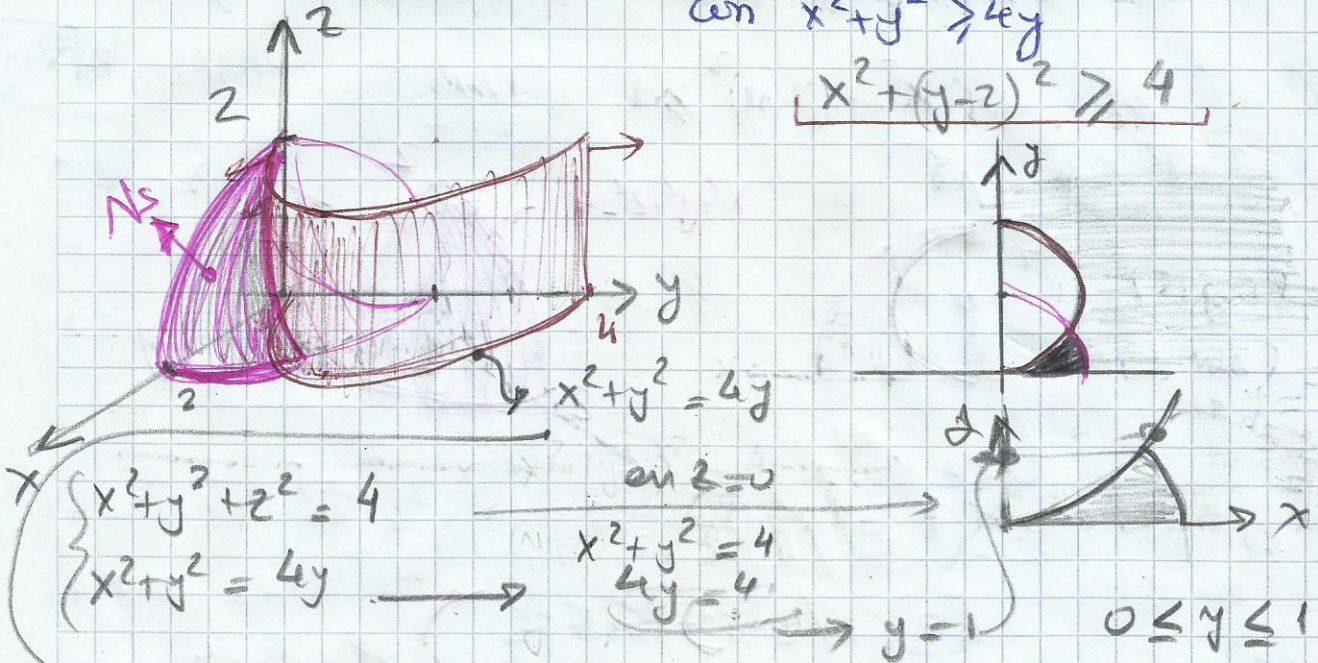 con x²+y² ⩾ 4y
x²+(y-2)² ⩾ 4
z
2
Ns
y
4
2
x
x²+y² = 4y
y
{x²+y²+z² = 4
x²+y² = 4y
en z=0
x²+y² = 4
4y = 4
y = 1
y
x
0 ≤ y ≤ 1